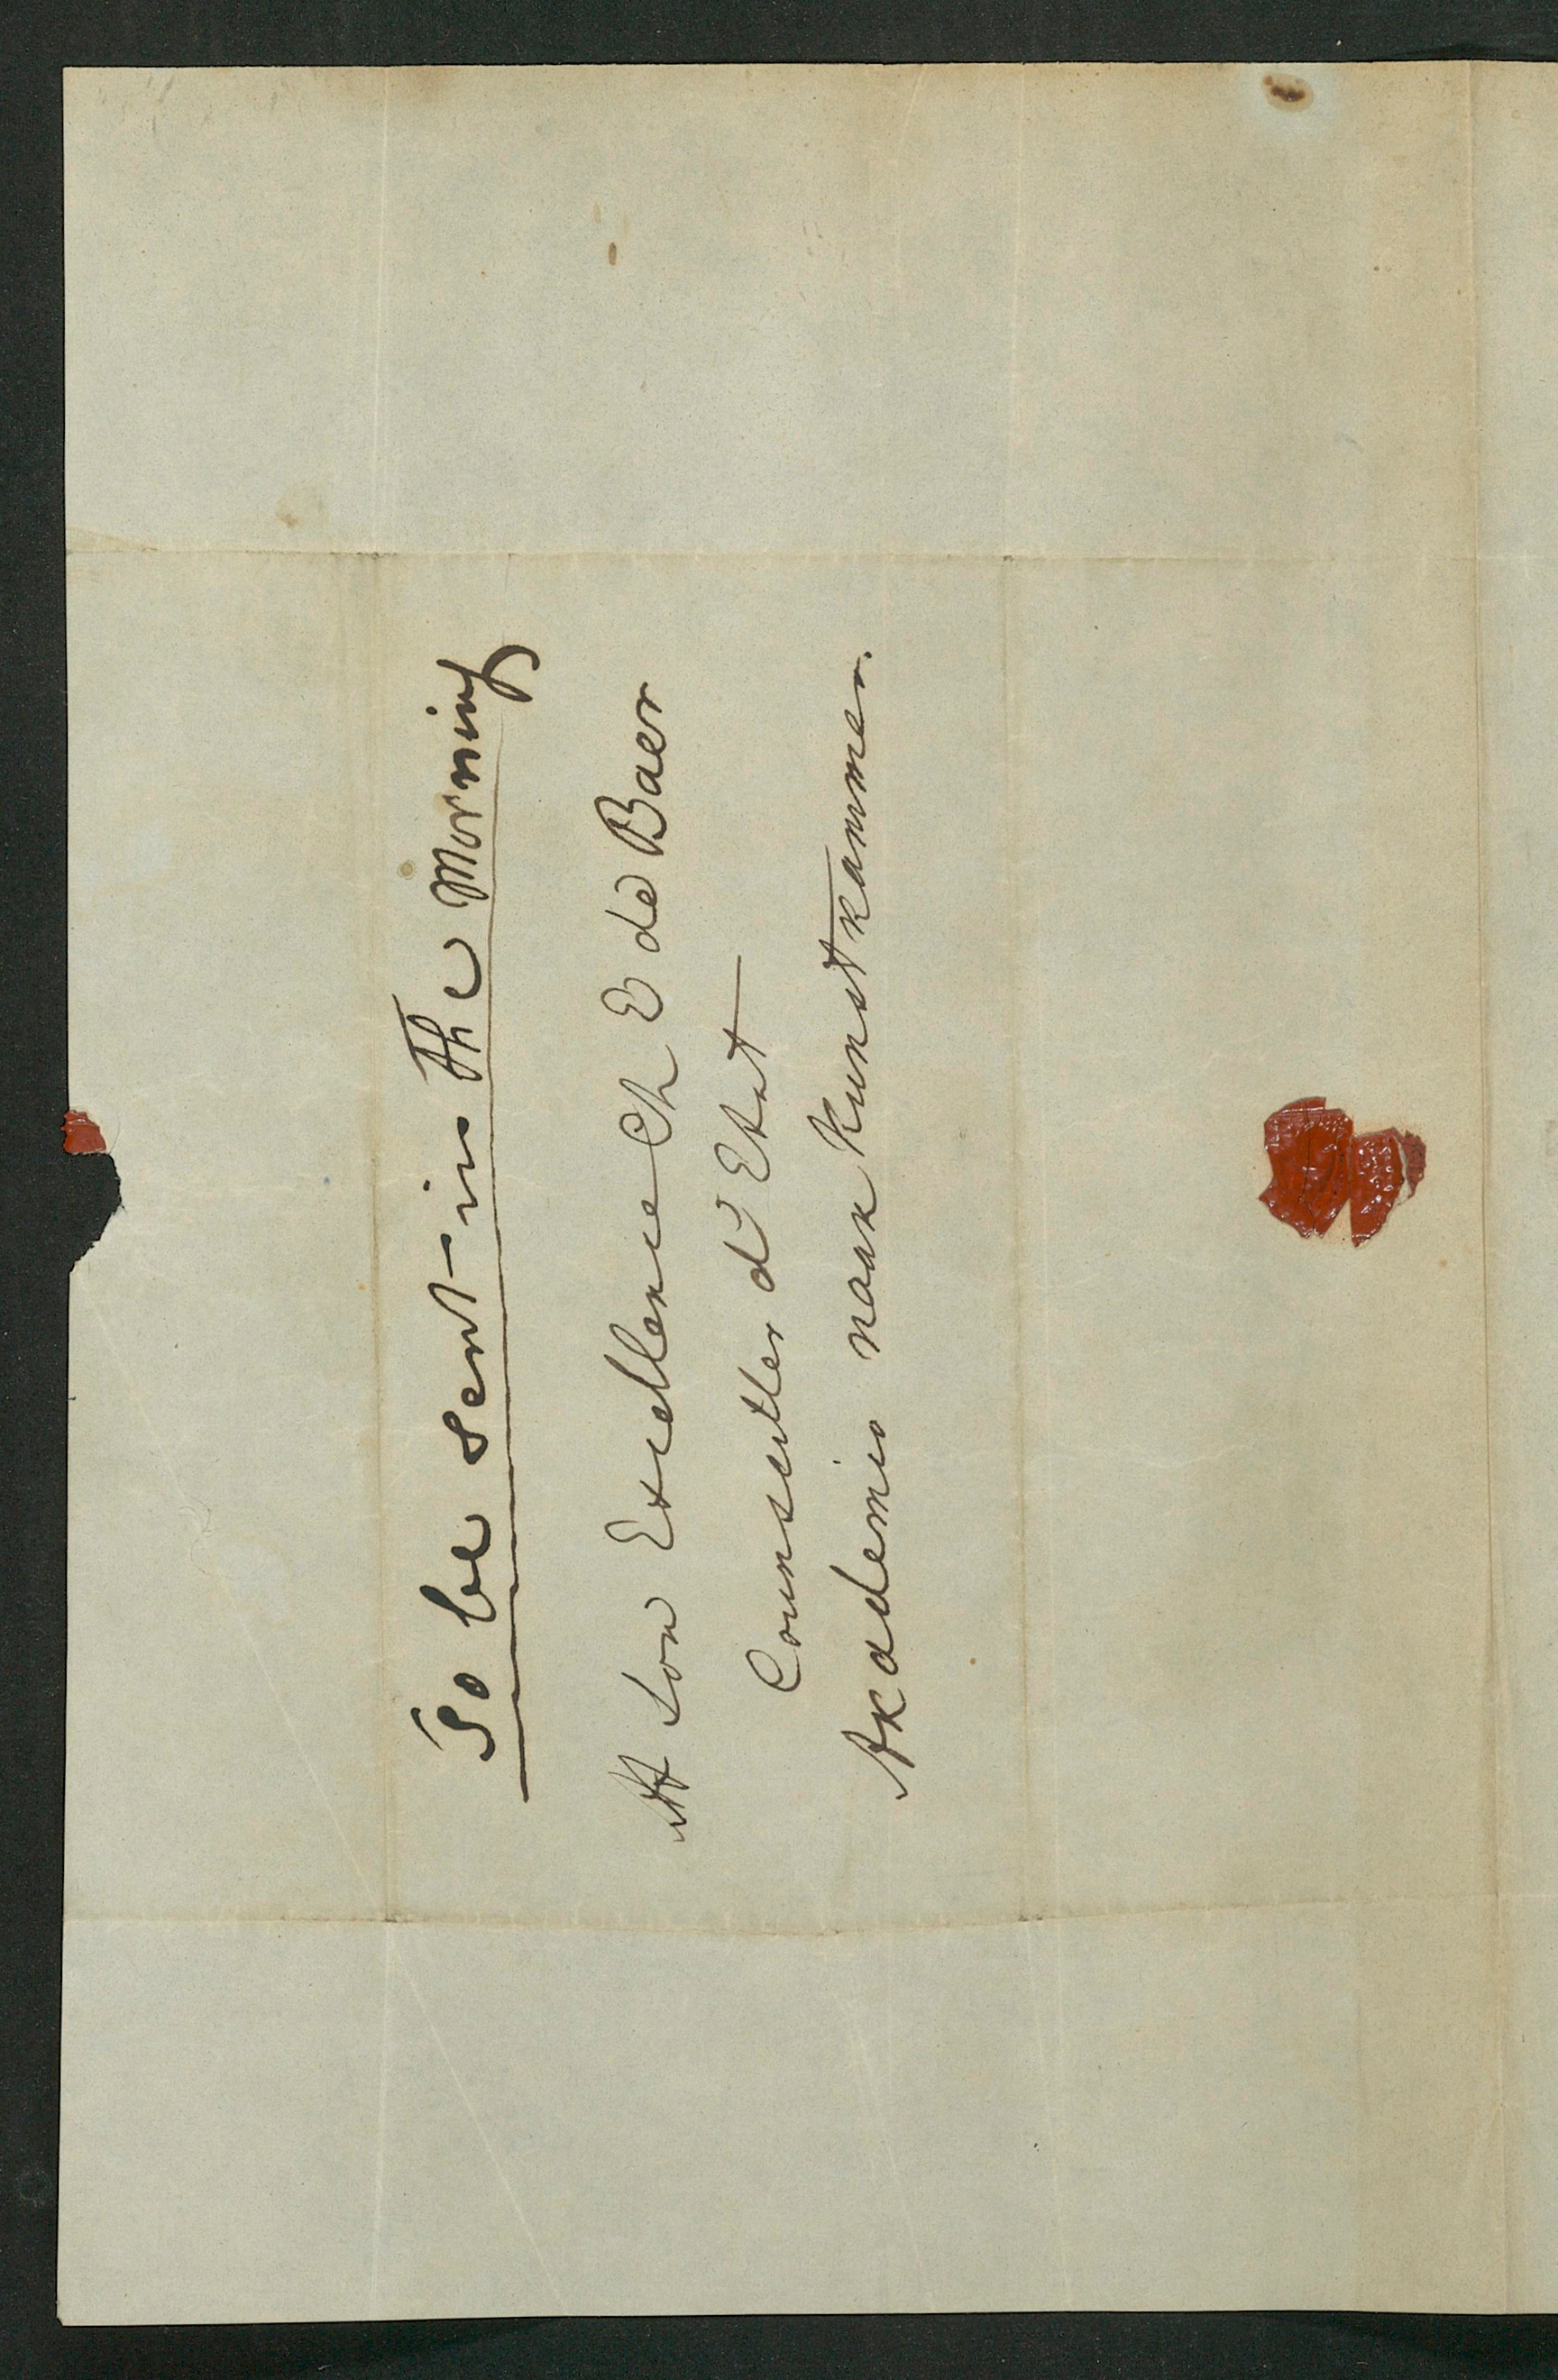 To be sent in The Morning
A Son Excellence Ch E de Baer
Counseiller d Etat
Akademie naar Kunstkammer.